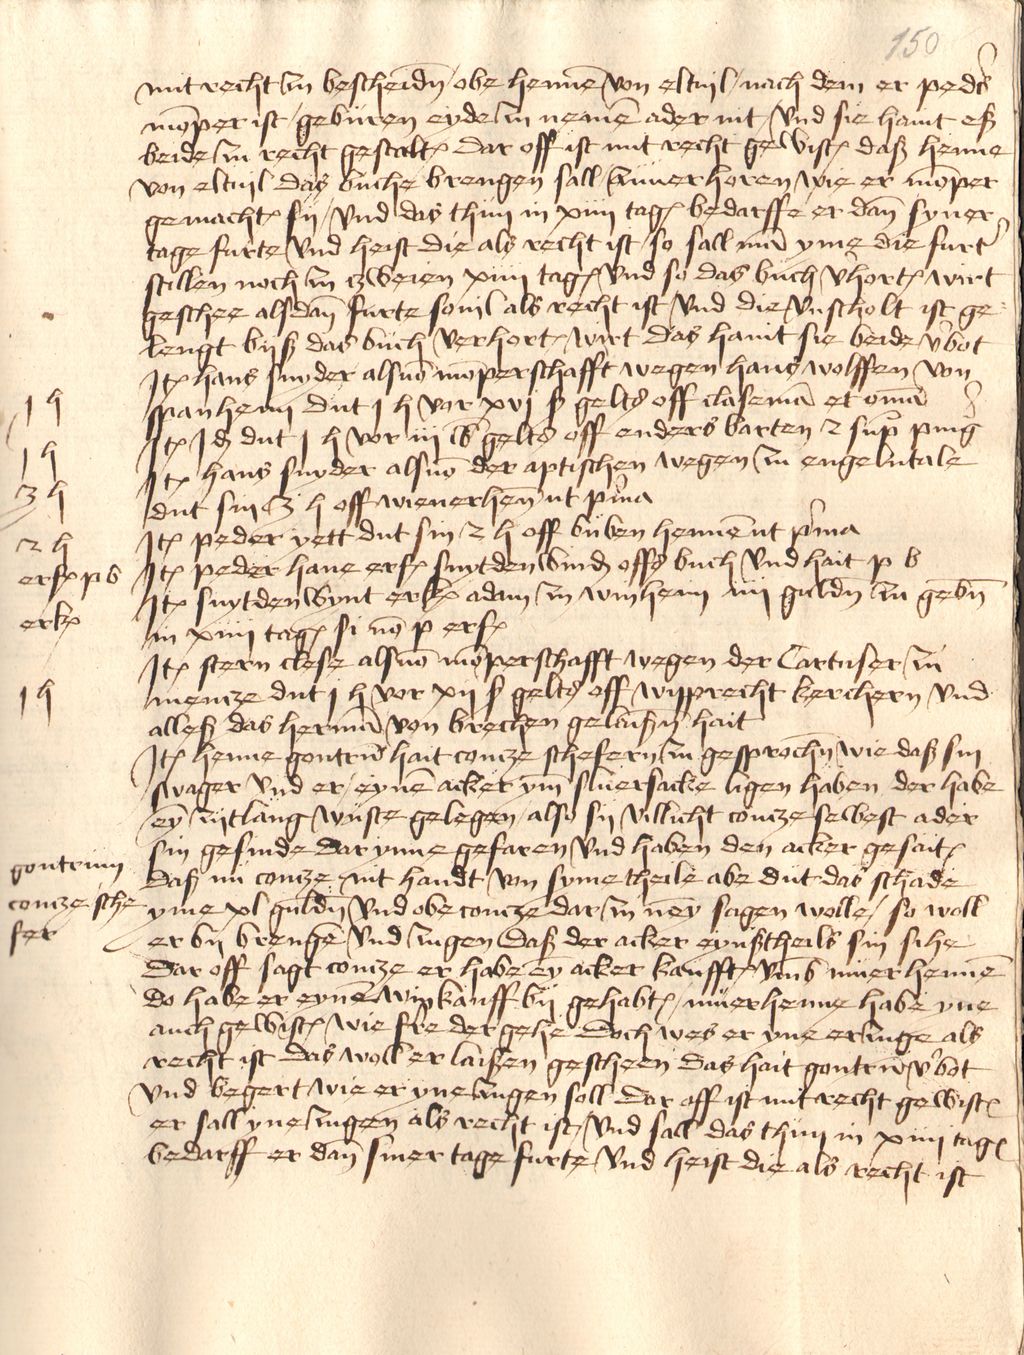 150
mit recht zu bescheidn obe henne von eltuil nach dem er peders
momper ist geburen eyde zu nemen ader nit Und sie hait eß
beide zu recht gestalt Dar off ist mit recht gewist daß henne
von eltuil das buche brengen sall zuuerhoren wie er momper
gemacht sij Und das thun in xiiii tag bedarffe er dan syner
tage furte Und heist die als recht ist so sall man yme die furt
stillen noch zu zweien xiiii tag Und so das buch vhort wirt
geschee alsdan furte souil als recht ist Und die Unscholt ist ge-
lengt biß das buch verhort wirt das hant sie beide vbot
Jt hans snyder alsuo momperschafft wegen hans wolffen von
1 h
spanheim dut 1 h vor xvj ß gelts off clasema et oma
1 h
Jt Jd dut 1 h vor iij lb gelts off enders barten 2 sup pmg
Jt hans snyder alsuo der aptischen wegen zu engeltale
3 h
dut sin 3 h off wienerhen ut pma
2 h
Jt peder yett dut sin 2 h off buben henne ut pma
erf p b
Jt peder hane erf snytdenwind offs buch Und hait p b
erk
Jt snytdenwynt erk adam zu winheim iiii guldn zu gebn
in xiiii tag si no p erf
Jt stern clese alsuo momperschafft wegen der Cartuser zu
1 h
mencze dut 1 h vor xij ß gelts off wipprecht kerchern Und
alleß das herma von brechen gelaißn hait
Jt henne gontru hait concze schefern zu gesprochn wie daß sin
swager Und er eyne acker ym sluersacke ligen haben der habe
ey zijtlang wuste gelegen also sij villicht concze selbest ader
sin gesinde dar ynne gefaren Und haben den acker gesait
gontrum
concze sche
fer
Daß nu concze mit handt von syme theile abe dut das schade
yme xl guldn Und obe concze dar zu ney sagen wolle so woll
er by brenge Und zugen daß der acker eynßtheils sin sihe
Dar off sagt concze er habe ey acker kaufft umb muerhenne
do habe er eyne winkauff bij gehabt muerhenne habe yne
auch gewist wie fre der gehe Doch wes er yne erzuge als
recht ist das woll er laißen gescheen das hait gontru vbot
Und begert wie er yne zugen soll Dar off ist mit recht gewist
er sall yne zugen als recht ist Und sall das thun in xiiii tag
bedarff er dan siner tage furte Und heist die als recht ist